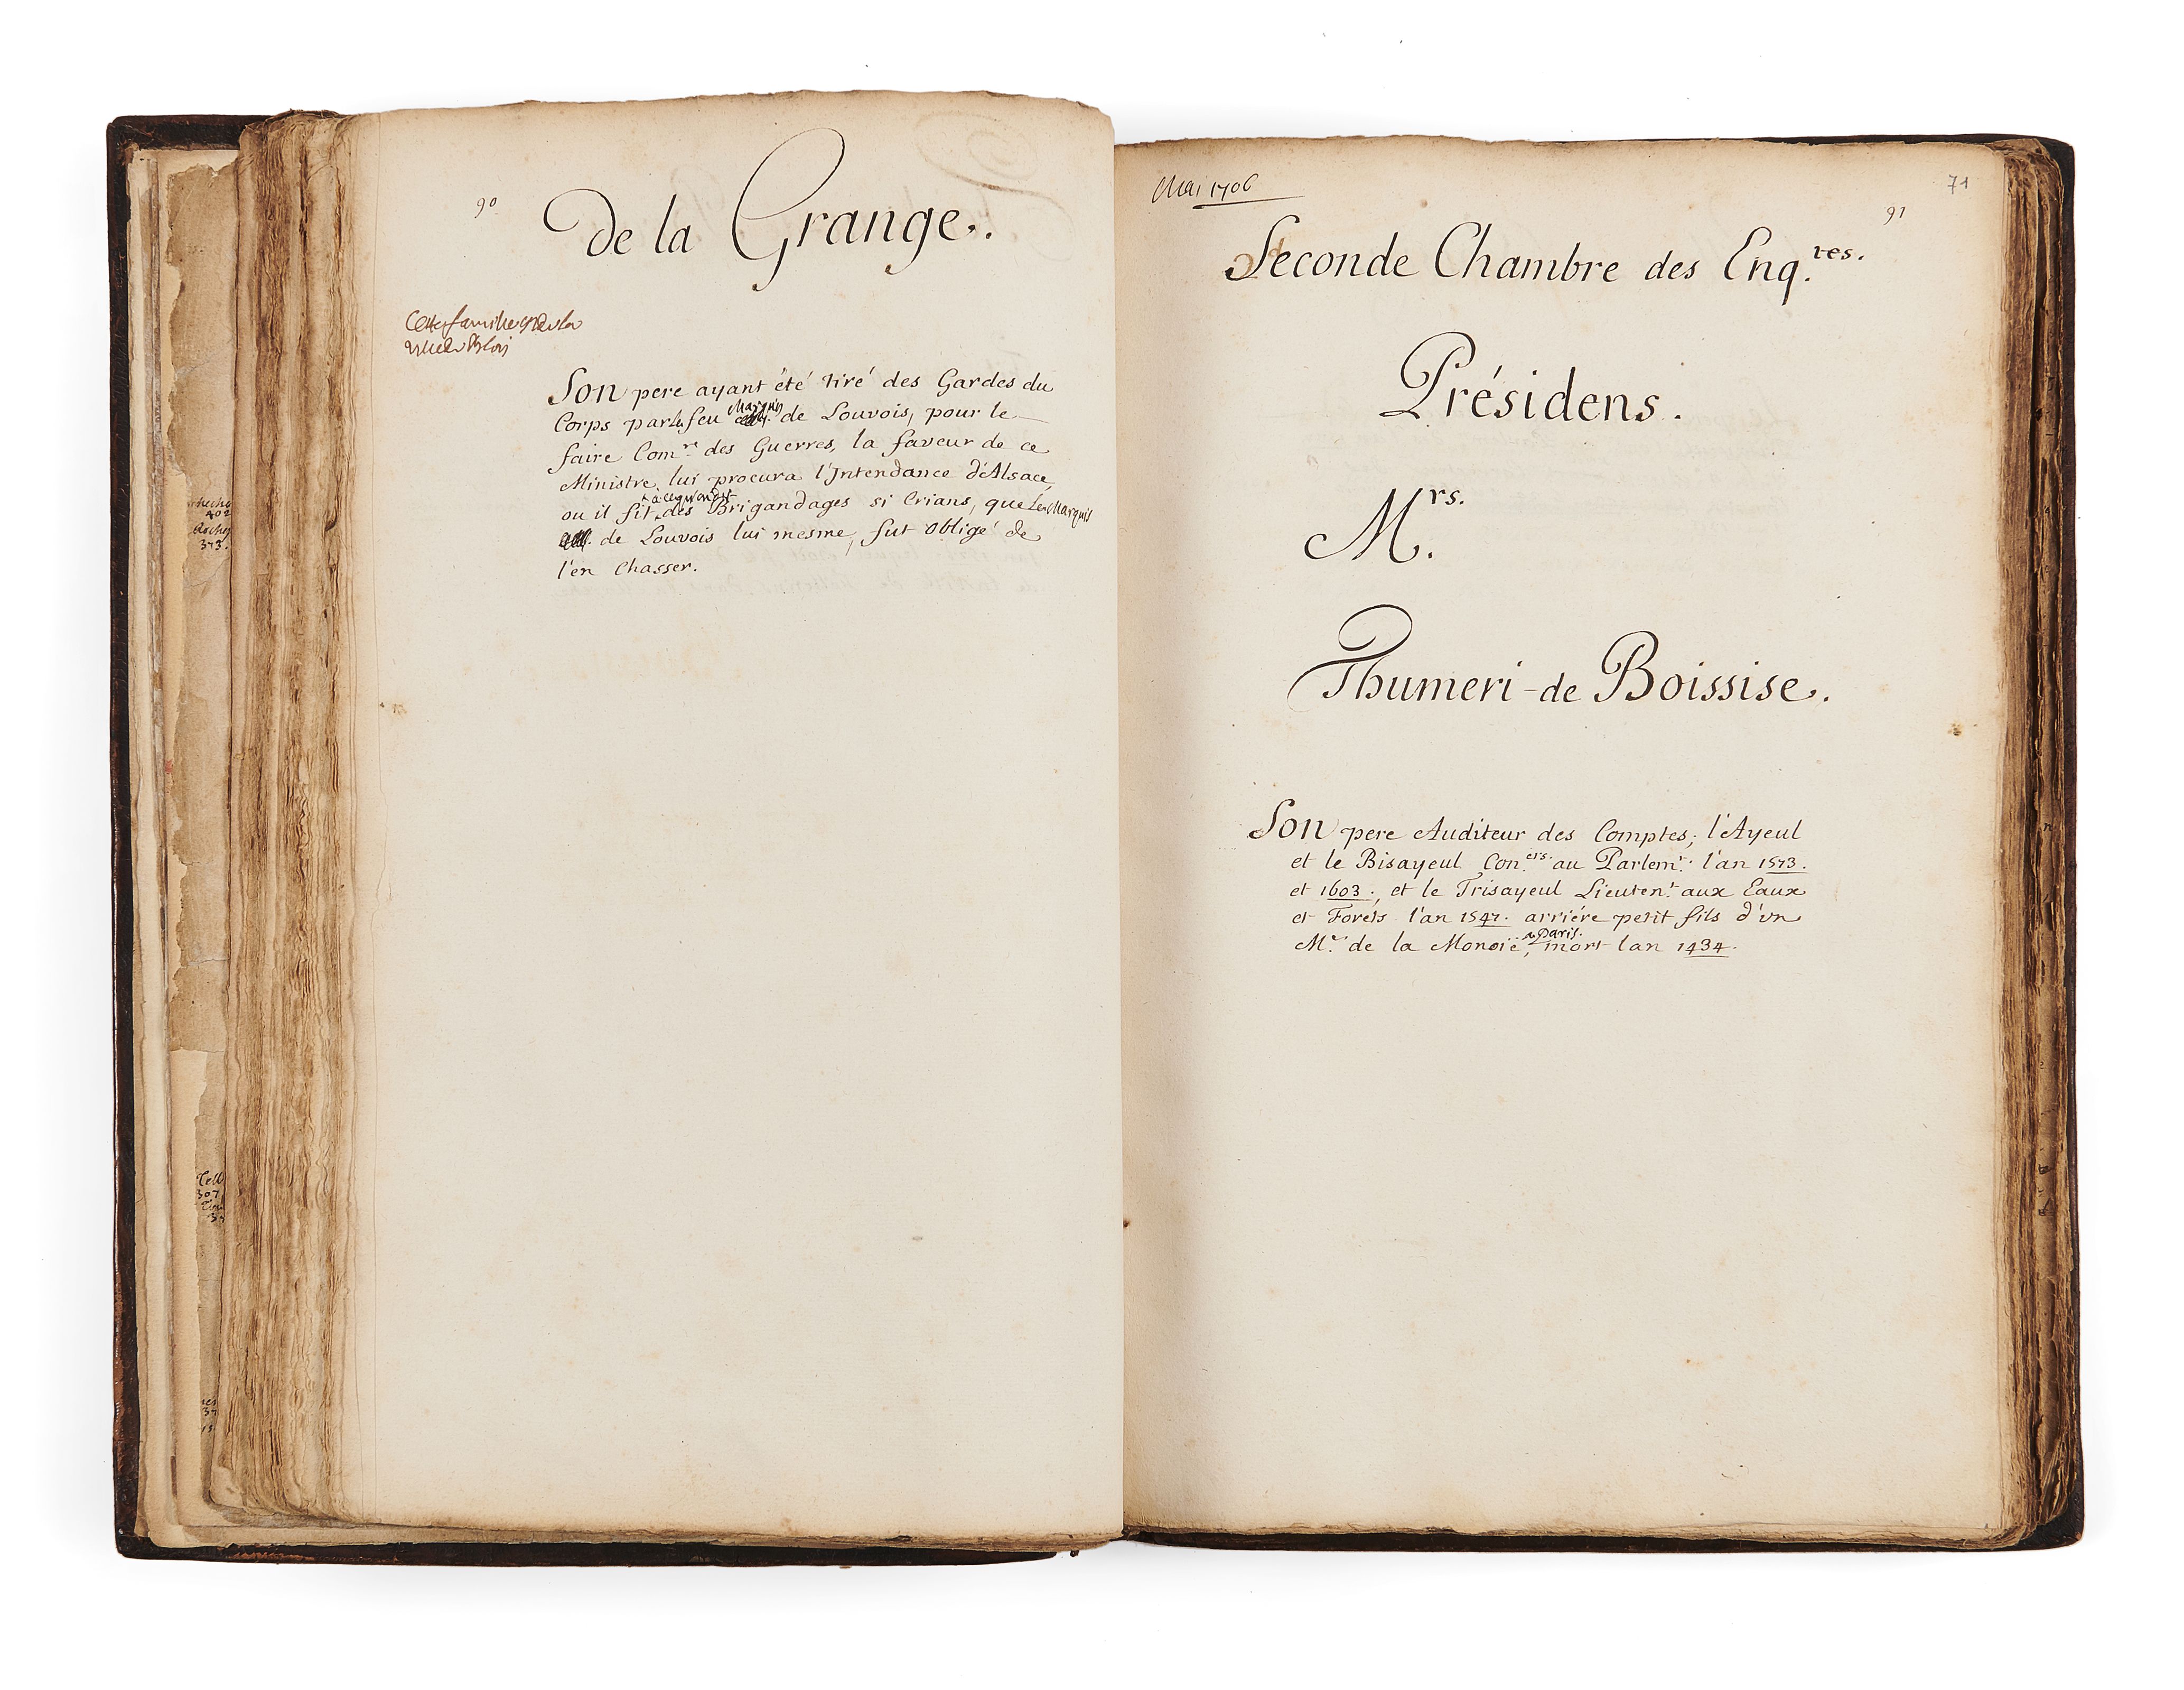 90.
de la Grange.
Cette famille est de la
ville de Blois
Son pere ayant été tiré des Gardes du
Corps par le feu Marquis de Louvois, pour le
faire Com.re des Guerres, la faveur de ce
Ministre lui procura l'Intendance d'Alsace,
ou il fit, à ce qu'on dit des Brigandages si Crians, que Le Marquis
de Louvois lui mesme, fut obligé de
l'en Chasser.
402
373.
307
Mai 1706
71
91
Seconde Chambre des Enq.tes.
Présidens.
M.rs.
Thumeri-de Boissise.
Son pere Auditeur des Comptes; l'Ayeul
et le Bisayeul Con.ers. au Parlem.t l'an 1573.
et 1603; et le Trisayeul Lieuten.t aux Eaux
et Forets l'an 1547. arriére petit fils d'un
M.e de la Monoïe a Paris, mort lan 1434.